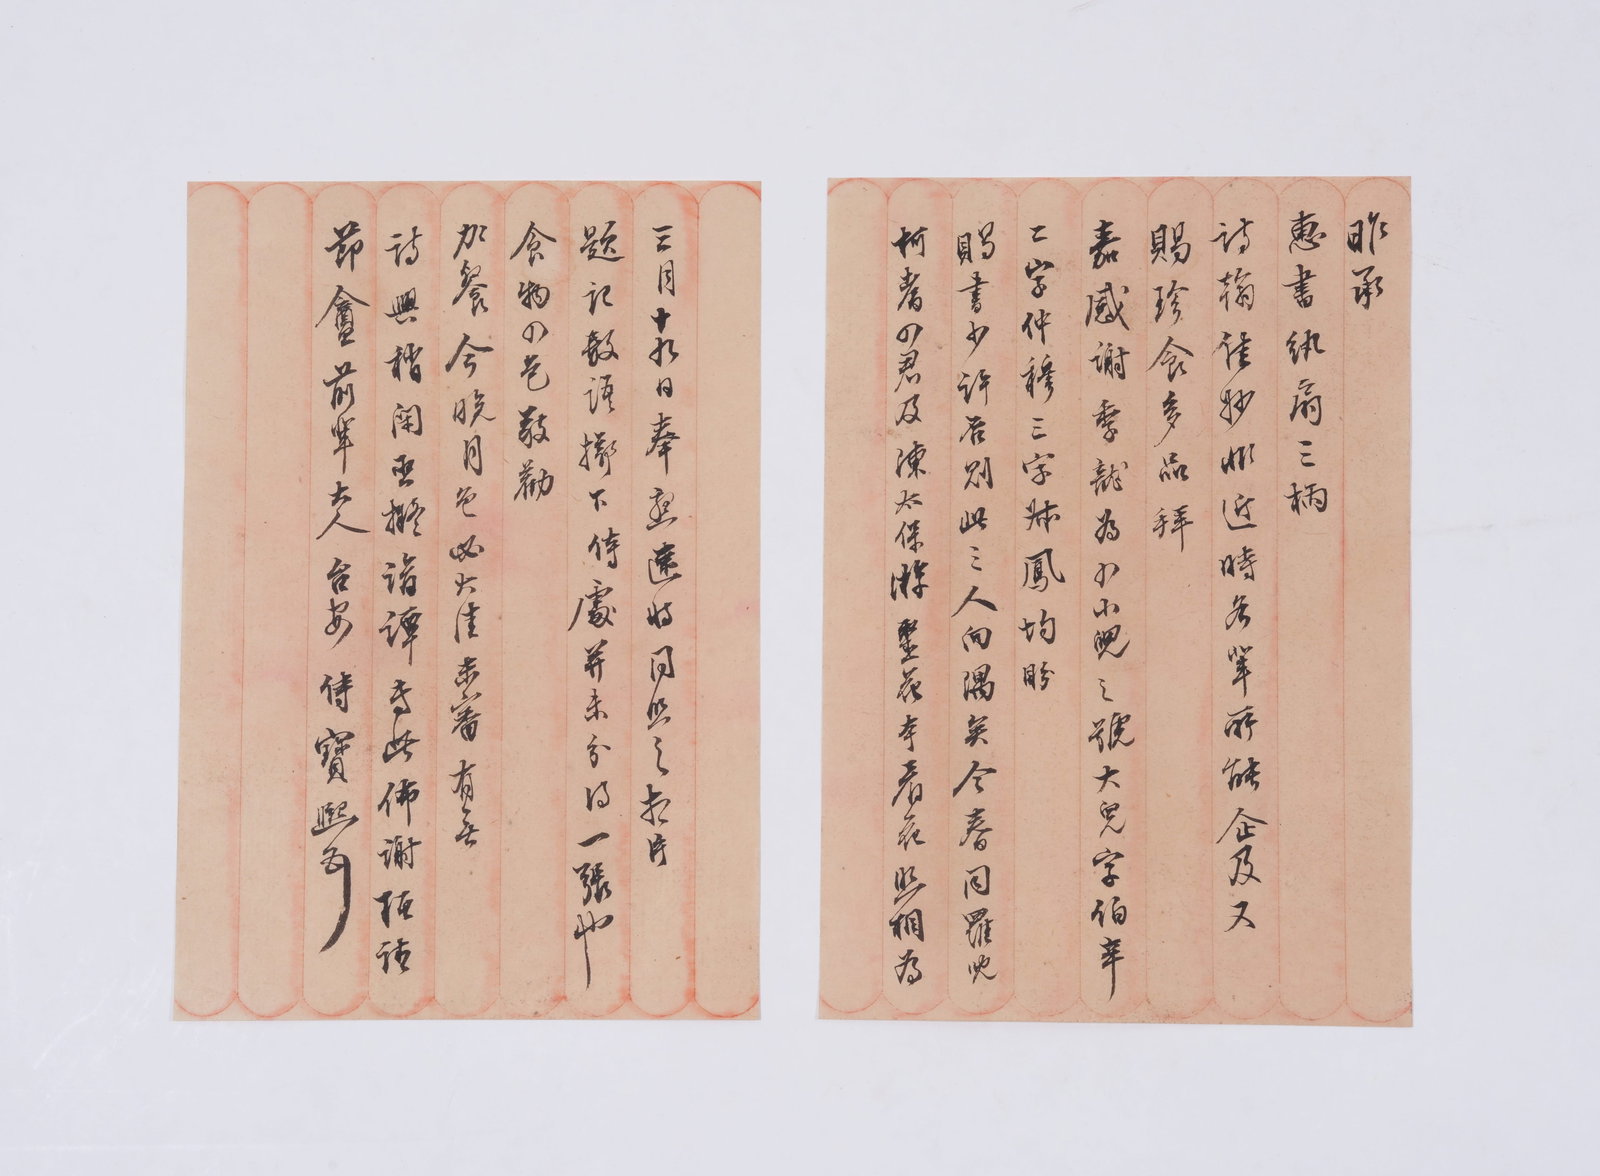 昨承
惠書紈扇三柄
詩翰佳妙非近時名輩所能企及又
賜珍食多品拜
嘉感謝季龍為小小兒之號大兒字伯章
二字仲穆三字鳳均盼
賜書少許否則此三人向隅矣今春同羅
柯耆四君及陳太保游聖花寺看花照相為
三月十九日奉懇速將同照之相片
題記數語擲下侍處并未分得一張也
食物四包敬勸
加餐今晚月色必大佳未審有無
詩興稍閑亟擬詣譚專此佈謝極請
節盦前輩大人台安侍寶熙頓